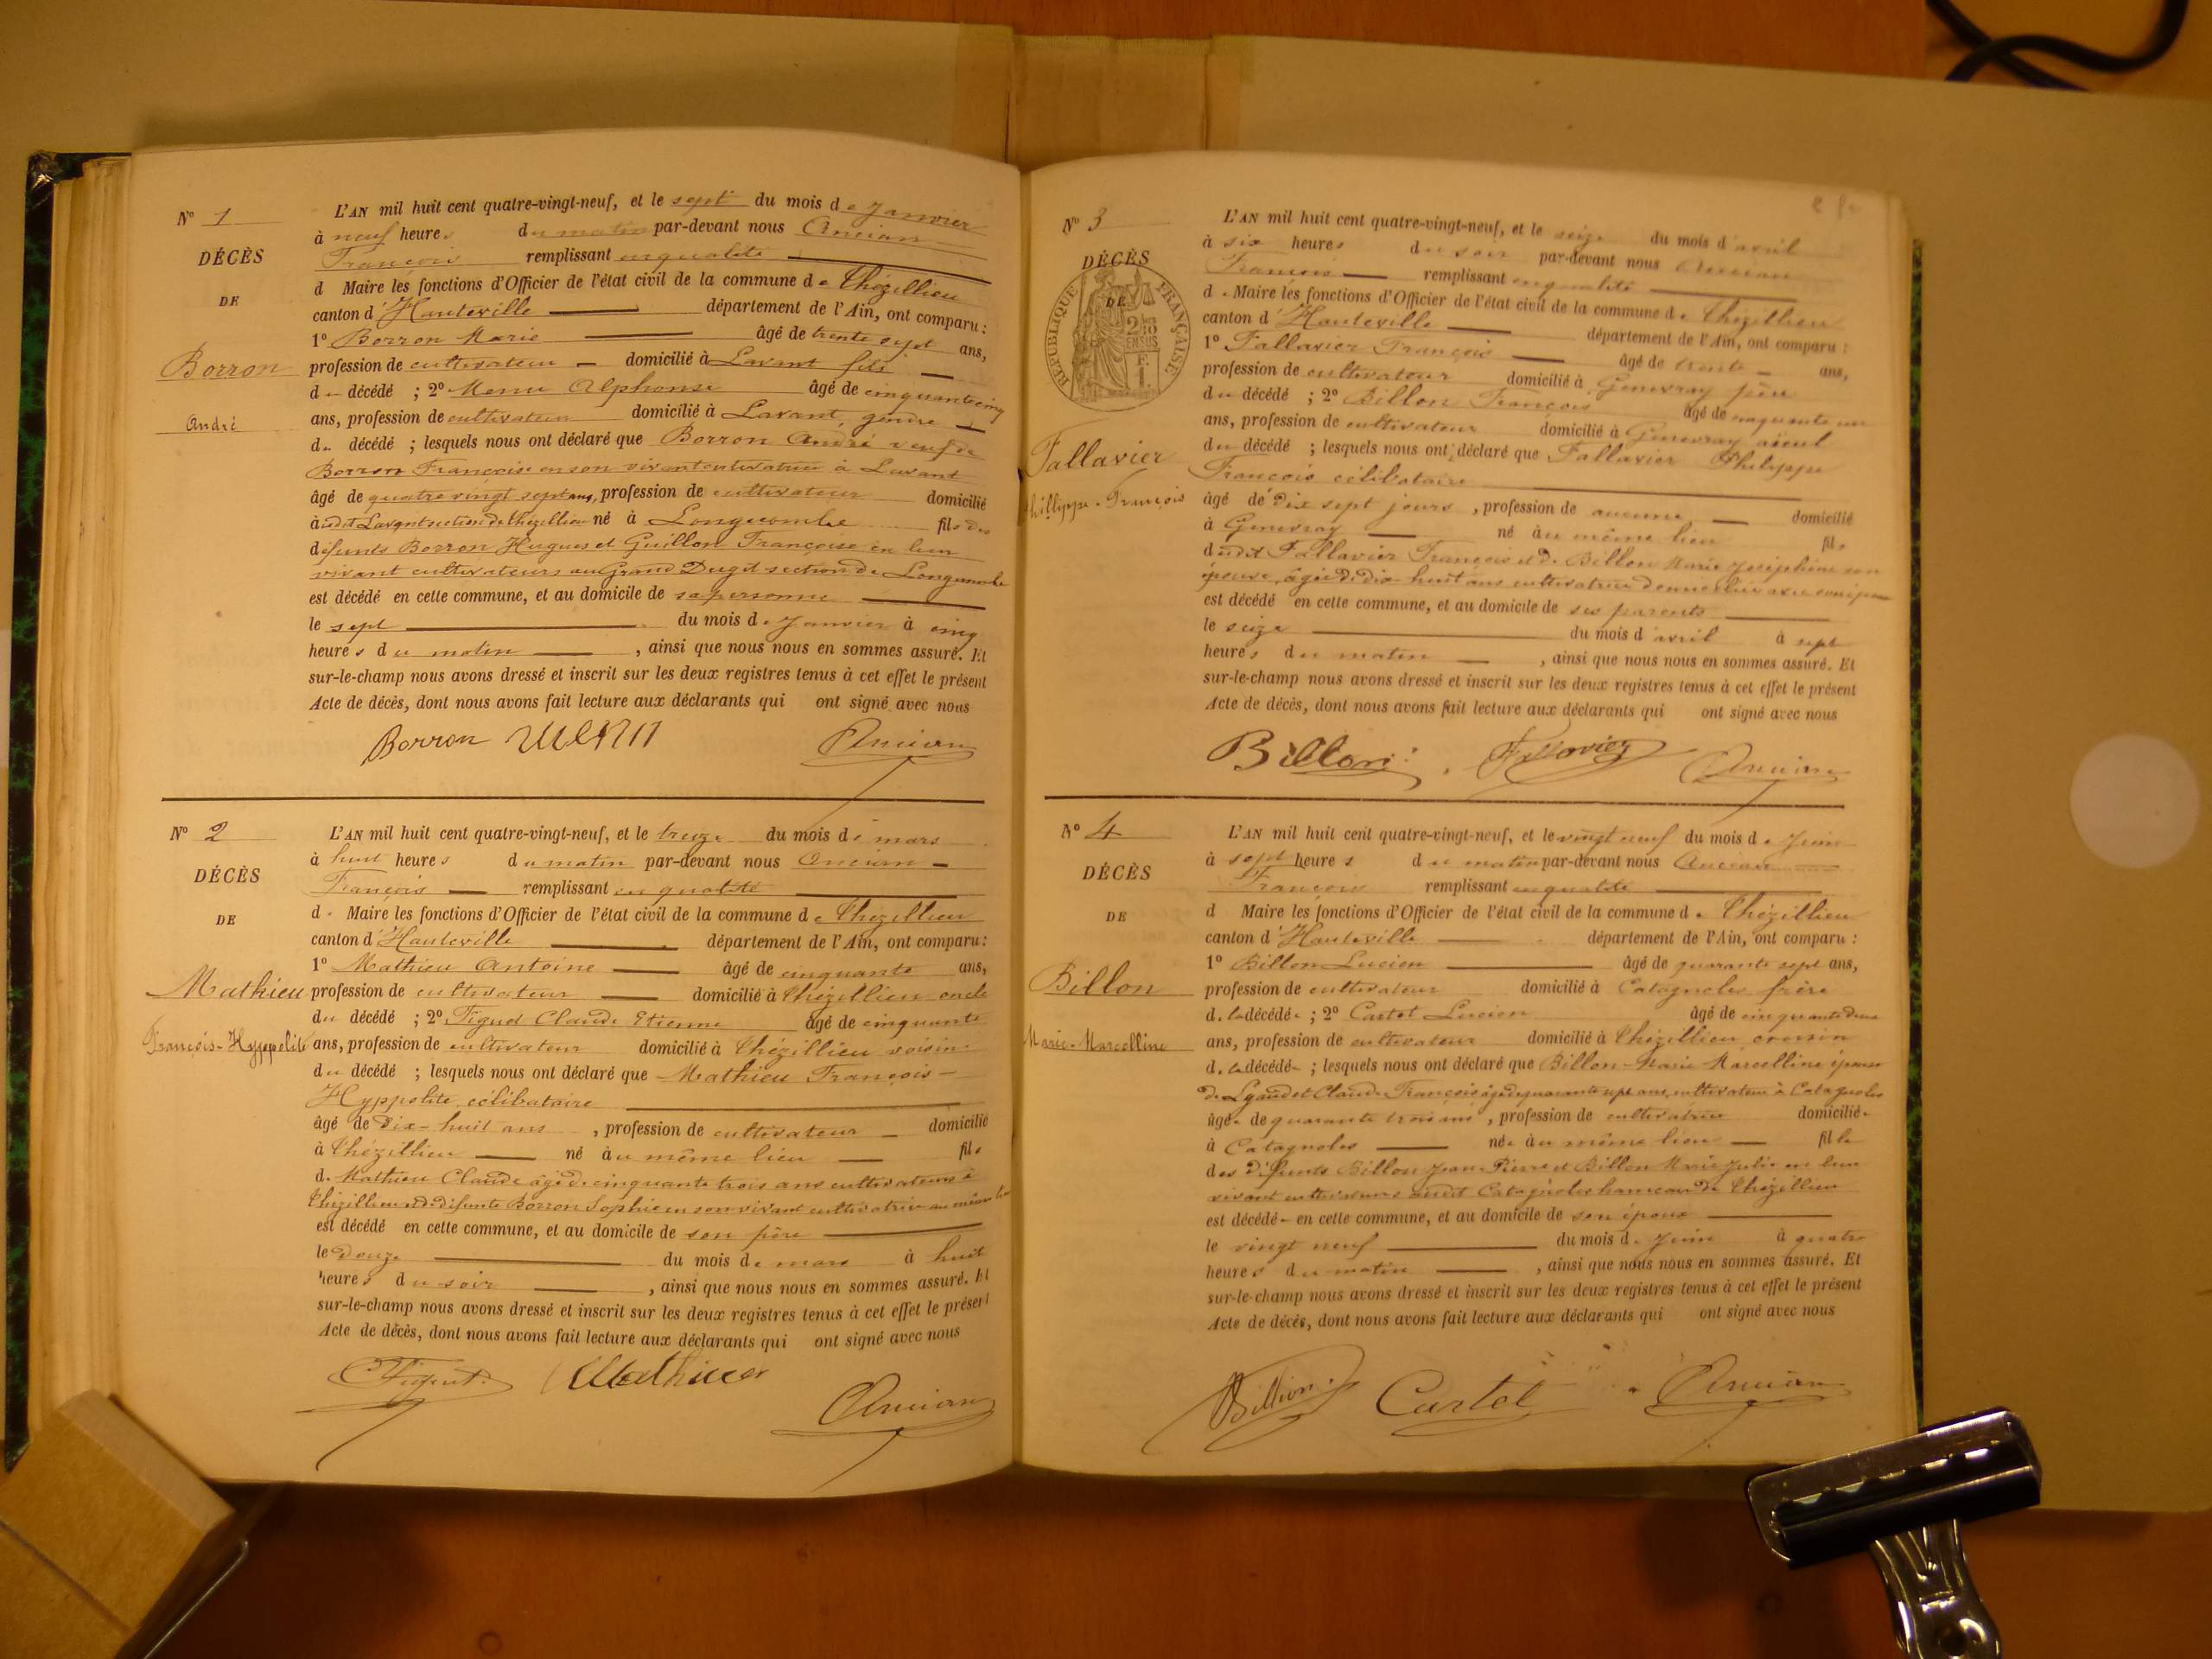 N° 1
DÉCÈS
DE
Borron
André
L'AN mil huit cent quatre-vingt-neuf, et le sept du mois de Janvier
à neuf heures du matin par-devant nous Ancian
François remplissant en qualité
d Maire les fonctions d'Officier de l'état civil de la commune de Thézillieu
canton d'Hauteville département de l'Ain, ont comparu :
1° Borron Marie âgé de trente sept ans,
profession de cultivateur domicilié à Lavant fils
du décédé ; 2° Menu Alphonse âgé de cinquante cinq
ans, profession de cultivateur domicilié à Lavant, gendre
du décédé ; lesquels nous ont déclaré que Borron André veuf de
Borron Françoise en son vivant cultivatrice à Lavant
âgé de quatre vingt sept ans, profession de cultivateur domicilié
à udit Lavant section de Thézillieu né à Longecombe fils des
défunts Borron Hugues et Guillon Françoise en leur
vivant cultivateurs au Grand Dergit section de Longecombe
est décédé en cette commune, et au domicile de sa personne
le sept du mois de Janvier à cinq
heures du matin , ainsi que nous nous en sommes assuré. Et
sur-le-champ nous avons dressé et inscrit sur les deux registres tenus à cet effet le présent
Acte de décès, dont nous avons fait lecture aux déclarants qui ont signé avec nous
Borron Menu Ancian
N° 2
DÉCÈS
DE
Mathieu
François-Hyppolite
L'AN mil huit cent quatre-vingt-neuf, et le treize du mois de mars
à huit heures du matin par-devant nous Ancian
François remplissant en qualité
d Maire les fonctions d'Officier de l'état civil de la commune de Thézillieu
canton d'Hauteville département de l'Ain, ont comparu :
1° Mathieu Antoine âgé de cinquante ans,
profession de cultivateur domicilié à Thézillieu oncle
du décédé ; 2° Figuet Claude Etienne âgé de cinquante
ans, profession de cultivateur domicilié à Thézillieu voisin
du décédé ; lesquels nous ont déclaré que Mathieu François-
Hyppolite célibataire
âgé de Dix-huit ans , profession de cultivateur domicilié
à Thézillieu né au même lieu fils
d. Mathieu Claude âgé de cinquante trois ans cultivateur à
Thézillieu et de défunte Borron Sophie en son vivant cultivatrice au même lieu
est décédé en cette commune, et au domicile de son père
le Douze du mois de mars à huit
heures du soir , ainsi que nous nous en sommes assuré. Et
sur-le-champ nous avons dressé et inscrit sur les deux registres tenus à cet effet le présent
Acte de décès, dont nous avons fait lecture aux déclarants qui ont signé avec nous
Mathieu
Ancian
N° 3
DÉCÈS
DE
RÉPUBLIQUE FRANÇAISE
Fallavier
Philippe-François
L'AN mil huit cent quatre-vingt-neuf, et le seize du mois d'avril
à six heures du soir par-devant nous Ancian
François remplissant en qualité
d Maire les fonctions d'Officier de l'état civil de la commune de Thézillieu
canton d'Hauteville département de l'Ain, ont comparu :
1° Fallavier François âgé de trente ans,
profession de cultivateur domicilié à Genevray père
du décédé ; 2° Billon François âgé de
ans, profession de cultivateur domicilié à Genevray aïeul
du décédé ; lesquels nous ont déclaré que Fallavier Philippe
François célibataire
âgé de dix sept jours , profession de aucune domicilié
à Genevray né au même lieu fils
dudit Fallavier François et de Billon Marie Joséphine son
épouse, âgée de dix-huit ans cultivatrice demeurant avec son époux
est décédé en cette commune, et au domicile de ses parents
le seize du mois d'avril à sept
heures du matin , ainsi que nous nous en sommes assuré. Et
sur-le-champ nous avons dressé et inscrit sur les deux registres tenus à cet effet le présent
Acte de décès, dont nous avons fait lecture aux déclarants qui ont signé avec nous
Billon Fallavier Ancian
N° 4
DÉCÈS
DE
Billon
Marie-Marcelline
L'AN mil huit cent quatre-vingt-neuf, et le vingt neuf du mois de Juin
à sept heures du matin par-devant nous Ancian
François remplissant en qualité
d Maire les fonctions d'Officier de l'état civil de la commune de Thézillieu
canton d'Hauteville département de l'Ain, ont comparu :
1° Billon Lucien âgé de quarante sept ans,
profession de cultivateur domicilié à Catagnoles frère
d. la décédée ; 2° Cartet Lucien âgé de cinquante deux
ans, profession de cultivateur domicilié à Thézillieu cousin
d. la décédée ; lesquels nous ont déclaré que Billon-Marie Marcelline épouse
de Lyaudet Claude François âgé de quarante sept ans, cultivateur à Catagnoles
âgée de quarante trois ans , profession de cultivatrice domiciliée
à Catagnoles née au même lieu fille
des défunts Billon Jean-Pierre et Billon Marie Julie en leur
vivant cultivateurs audit Catagnoles hameau de Thézillieu
est décédée en cette commune, et au domicile de son époux
le vingt neuf du mois de Juin à quatre
heures du matin , ainsi que nous nous en sommes assuré. Et
sur-le-champ nous avons dressé et inscrit sur les deux registres tenus à cet effet le présent
Acte de décès, dont nous avons fait lecture aux déclarants qui ont signé avec nous
Billion Cartet Ancian